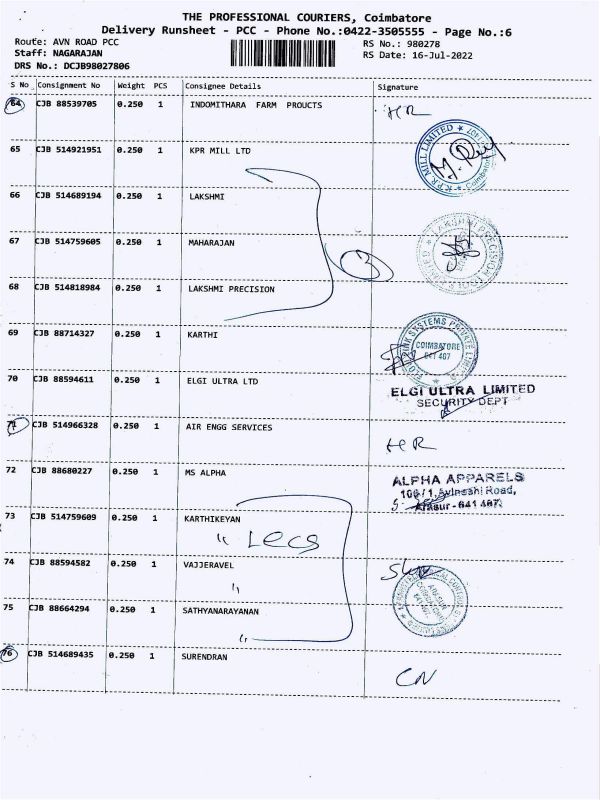 THE PROFESSIONAL COURIERS, Coimbatore
Delivery Runsheet - PCC - Phone No.:0422-3505555 - Page No.:6
Route: AVN ROAD PCC RS No.: 980278
Staff: NAGARAJAN RS Date: 16-Jul-2022
DRS No.: DCJB98027806
S No Consignment No Weight PCS Consignee Details Signature
64 CJB 88539705 0.250 1 INDOMITHARA FARM PROUCTS HR
65 CJB 514921951 0.250 1 KPR MILL LTD
K.P.R. MILL LIMITED Coimbatore
66 CJB 514689194 0.250 1 LAKSHMI
67 CJB 514759605 0.250 1 MAHARAJAN
LAKSHMI PRECISION TOOLS LIMITED
3
68 CJB 514818984 0.250 1 LAKSHMI PRECISION
69 CJB 88714327 0.250 1 KARTHI
SYSTEMS PRIVATE
COIMBATORE
641 407
70 CJB 88594611 0.250 1 ELGI ULTRA LTD
ELGI ULTRA LIMITED
SECURITY DEPT
71 CJB 514966328 0.250 1 AIR ENGG SERVICES
HR
72 CJB 88680227 0.250 1 MS ALPHA
ALPHA APPARELS
106/1, Avinashi Road,
Arasur - 641 407.
73 CJB 514759609 0.250 1 KARTHIKEYAN
" Lecs
74 CJB 88594582 0.250 1 VAJJERAVEL
"
75 CJB 88664294 0.250 1 SATHYANARAYANAN
"
76 CJB 514689435 0.250 1 SURENDRAN
CN